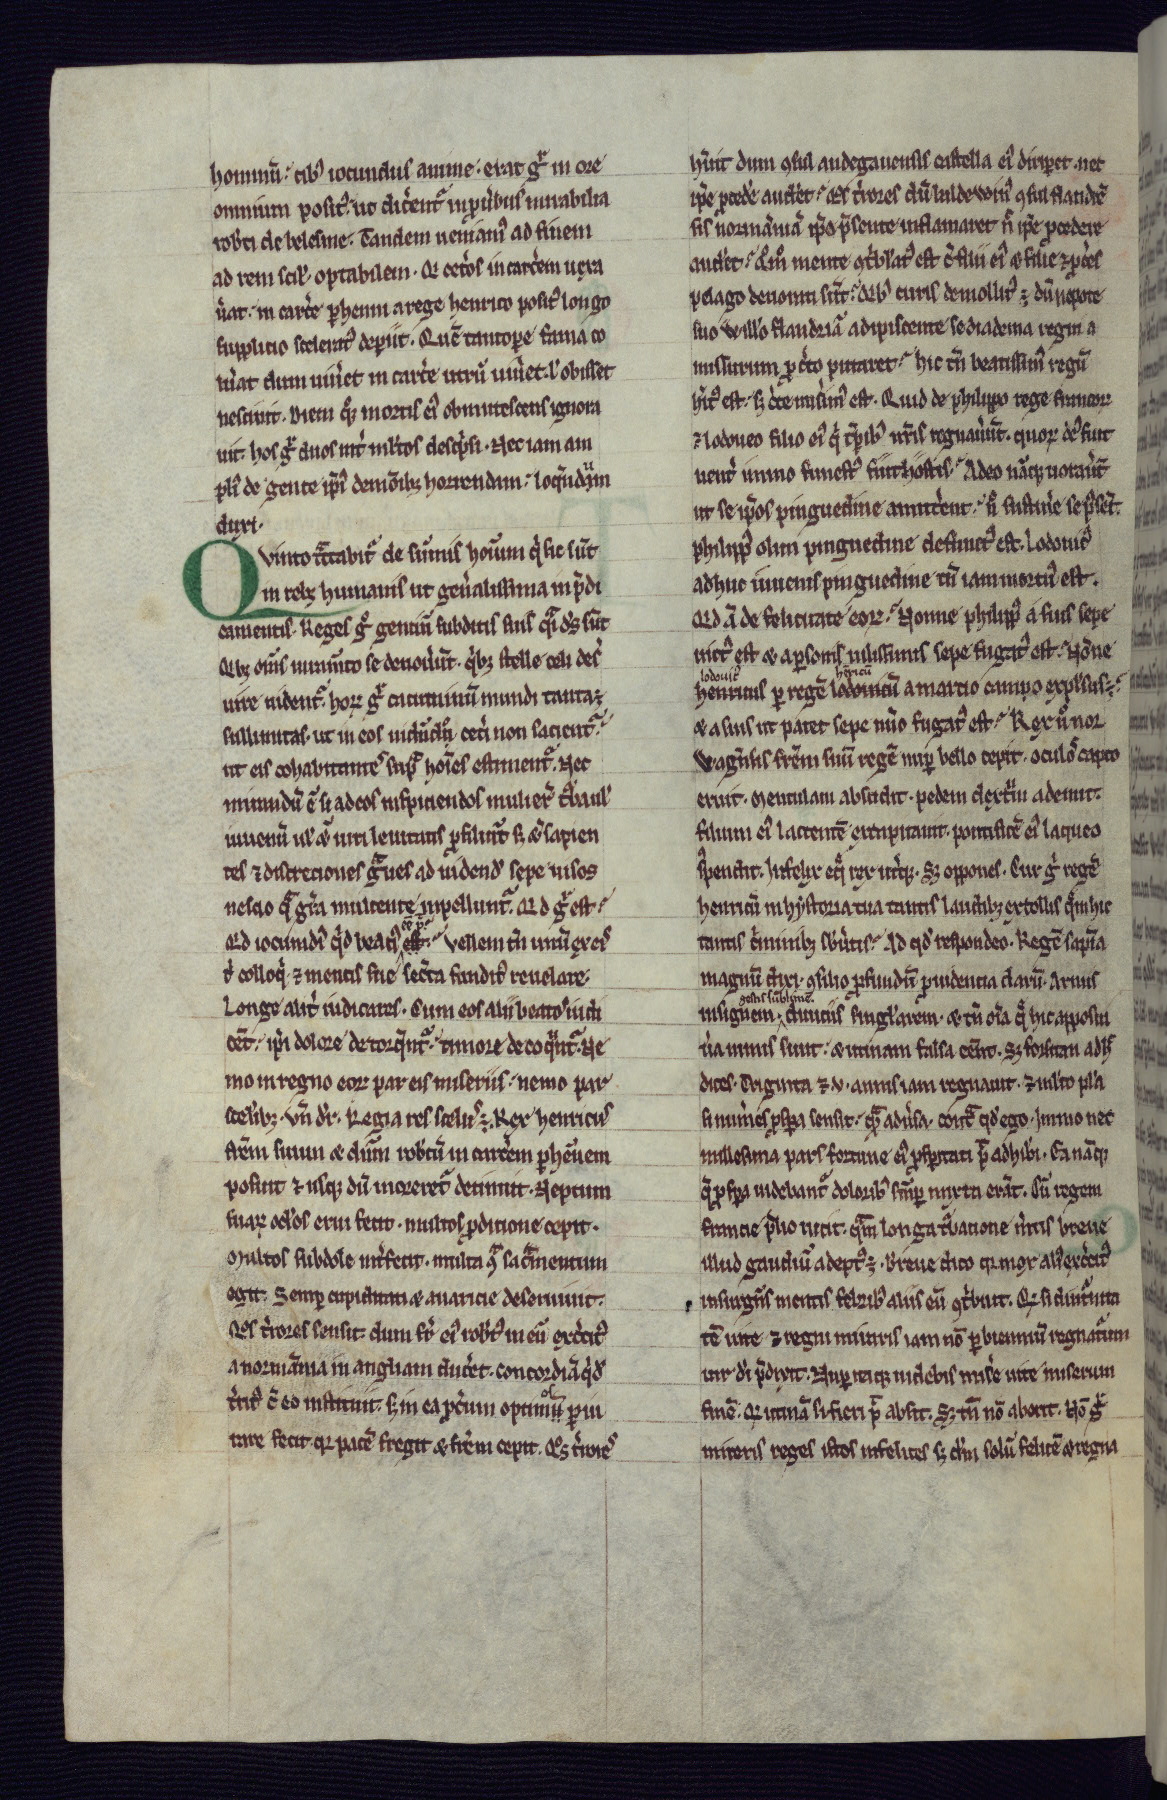 hominū: cib᷒ iocundus anime. erat gͦ in ore
omnium posit᷒. ut dic̄ent᷑ inp̄tib᷒ mirabilia
rob̄ti de belesme. Tandem ueniam᷒ ad finem
ad rem scil᷒ optabilem. Qi cet̄os in carc̄em uexa
u̅at. in carc̄e p̱henni a rege henrico posit᷒ longo
supplicio scelerat᷒ dep̱iit. Quē tantop̱e fama co
lu̅at dum uiu̅et in carc̄e utrū uiu̅et ł obisset
nesciuit. Diem q᷒ mortis ei᷒ obmutescens ignora
uit. hos gͦ duos int̄ ml̄tos desc̄psi. Nec iam am
pli᷒ de gente ip̄i demōib; horrendum: loq̄ndum
duxi.
Quinto t̄ctabit᷑ de sūmis hoīum q̄ sic sūt
in reb; humanis ut gen̄alissima in p̄di
camentis. Reges gͦ gentiū subditis suis q̄i dī sūt
Qib; oīns iuramto se deuou̅unt. q̄b; stelle celi des̄
uire uident᷑. hoꝝ gͦ cacuminū mundi tanta ē
sullimitas. ut in eos uidēdis cet̄i non sacient᷑:
ut eis cohabitantes sup̱ hoīes estiment᷑. Nec
mirandū ē si ad eos inspiciendos mulier̄ t̄be ul᷒
iuuenū ul᷒ & uiri leuitatis p̱siliūt s; & sapien
tes ⁊ discretiones g̅ues ad uidend᷒ sepe uisos
nescio q̅ gr̄a mulcente īpellunt᷑. Qid gͦ est:
Qid iocundi᷒ q̄d beati᷒ ēē p̄t: Vellem tn̄ unū ex eis
t̄ colloq̄i. ⁊ mentis sue sec̄ta funditus reuelare.
Longe alit̄ iudicares. Cum eos alii beatos iudi
cēt: ip̄i dolore de torq̄nt᷑: timore de coq̄nt᷑. Ne
mo in regno eoꝝ par eis miseriis: nemo par
scelerib;. Vn̄ dr̄. Regia res scelus ē. Rex henricus
frēm suum & dn̄m rob̄tū in carc̄em p̱hēnem
posuit ⁊ usq; dū moreret᷑ detinuit. Neptum
suaꝝ oc̄los erui fecit. multos p̱ditione cepit.
Multos subdole int̄fecit. multa q̅ sac̄mentum
egit. Semp̱ cupiditati & auaricie deseruiuit.
Qos t̄rores sensit. dum fr̄ ei᷒ rob̄t᷒ in eū exc̄it᷒
a normānnia in angliam duc̄et. concordiā q̄d
t̄rit᷒ c̄ eo instituit. s; in ea p̱c̄um optimos p̱iu
rare fecit. qꝛ pacē fregit & frēm cepit. Qos t̄rores
h̄uit dum ꝯsul andegauensis castella ei᷒ dirip̱et. nec
ip̄e p̱ced̄e aud̄et: Qos t̄rores dū baldewin᷒ ꝯsul flandrē
sis normānniā ip̄o p̱sente inflamaret n̄ ip̄e p̱cedere
aud̄et: Qͦm mente ꝯt̄bat᷒ est c̄ filii ei᷒ & filie ⁊ p̱c̄es
pelago deuorati sūt: Qib᷒ curis demollit᷒ ē dū nepote
suo Will̄o flandriā adipiscente se diadema regni a
missurum p̱c̄to putaret: hic tn̄ beatissim᷒ regū
hit᷒ est. s; c̄te mis̄im᷒ est. Quid de philippo rege francoꝝ
⁊ lodouco filio ei᷒ q̄i t̄pib᷒ nr̄is regnau̅ūt. quoꝝ de᷒ fuit
uent̄ immo funest᷒ fuit hostis: Adeo nāq; uorau̅t
ut se ip̄os pinguedine amitt̄ent: n̄ sustin̄e se possēt.
Philipp᷒ olim pinguedine defunct᷒ est. Lodouic᷒
adhuc iuuenis pinguedine tn̄ iam mortu᷒ est.
Qid ā de felicitate eoꝝ: Nonne philipp᷒ a suis sepe
uict᷒ est & a p̱sonis uilissimis sepe fugat᷒ est: Nōne
lodouic᷒ hēricū
henricus p̱ regē lodouicū a martio campo exp̱lsus ē:
& a suis ut patet sepe num̄o fugat᷒ est: Rex ū nor
Wagn̄sis frēm suū regē nup̱ bello cepit. oculos capto
eruit. mentulam abscidit. pedem dext̄ū ademit.
filium ei᷒ lactentē excapitauit. pontificē ei᷒ laqueo
sp̱endit. Infelix eq̄ rex ut̄q;. S; oppones. Cur gͦ regē
henricū in hystoria tua tantis laudib; extollis q̄m hic
tantis c̄minib; sb̄uertis: Ad qd̄ respondeo. Regē sapīa
magnū dixi. ꝯsilio p̱fundū p̱uidencia clarū. Armis
gestis sublimē.
insignem. diuiciis singl̄arem. & tn̄ oīa q̄ hic apposui
u̅a nimis sunt: & utinam falsa eēnt. S; forsitan adh᷒
dices. Triginta ⁊ v. annis iam regnauit. ⁊ ml̄to pl̄a
si num̄es p̱sp̱a sensit. q̄ adu̅sa. Cont̄ qd̄ ego. Immo nec
millesima pars fortune ei᷒ p̱sp̱itati p̄t adhib̄i. Ea nāq;
q̄ p̱sp̱a uidebant᷑ dolorib᷒ semp̱ mixta erāt. Cū regem
francie p̱lio uicit. q̄m longa t̄batione m̄tis breue
illud gaudiū adept᷒ ē. Breue dico qꝛ mox ali᷒ exc̄it᷒
insurgn̄s mentis felicib᷒ aliis eū ꝯt̄bauit. Qꝛ si diut᷑nita
tē uite ⁊ regni miraris iam nō p̱ bienniū regnatum
uir dī p̄dixit. Nup̱ itaq; uidebis mis̄e uite miserum
finē. Qi utinā si fieri p̄t absit. S; tn̄ nō aberit. Nō gͦ
mireris reges istos infelices s; dn̄m solū felicē & regna